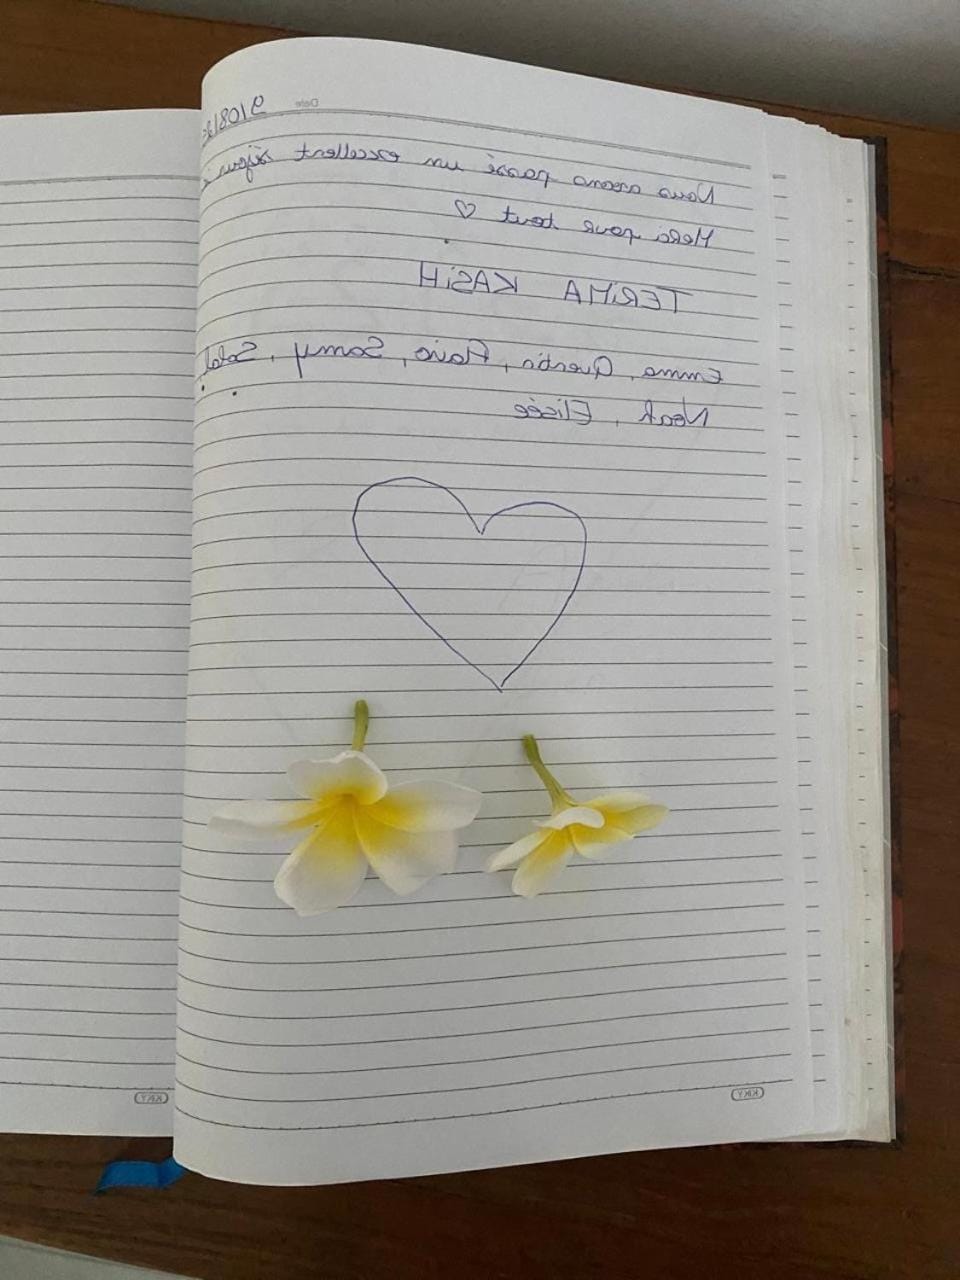 Date 9/08/2
Nous avons passé un excellent séjour
Merci pour tout ♡
TERIMA KASiH
Emma, Quentin, Flavio, Samy,
Noah, Elisée
KIKY
KIKY